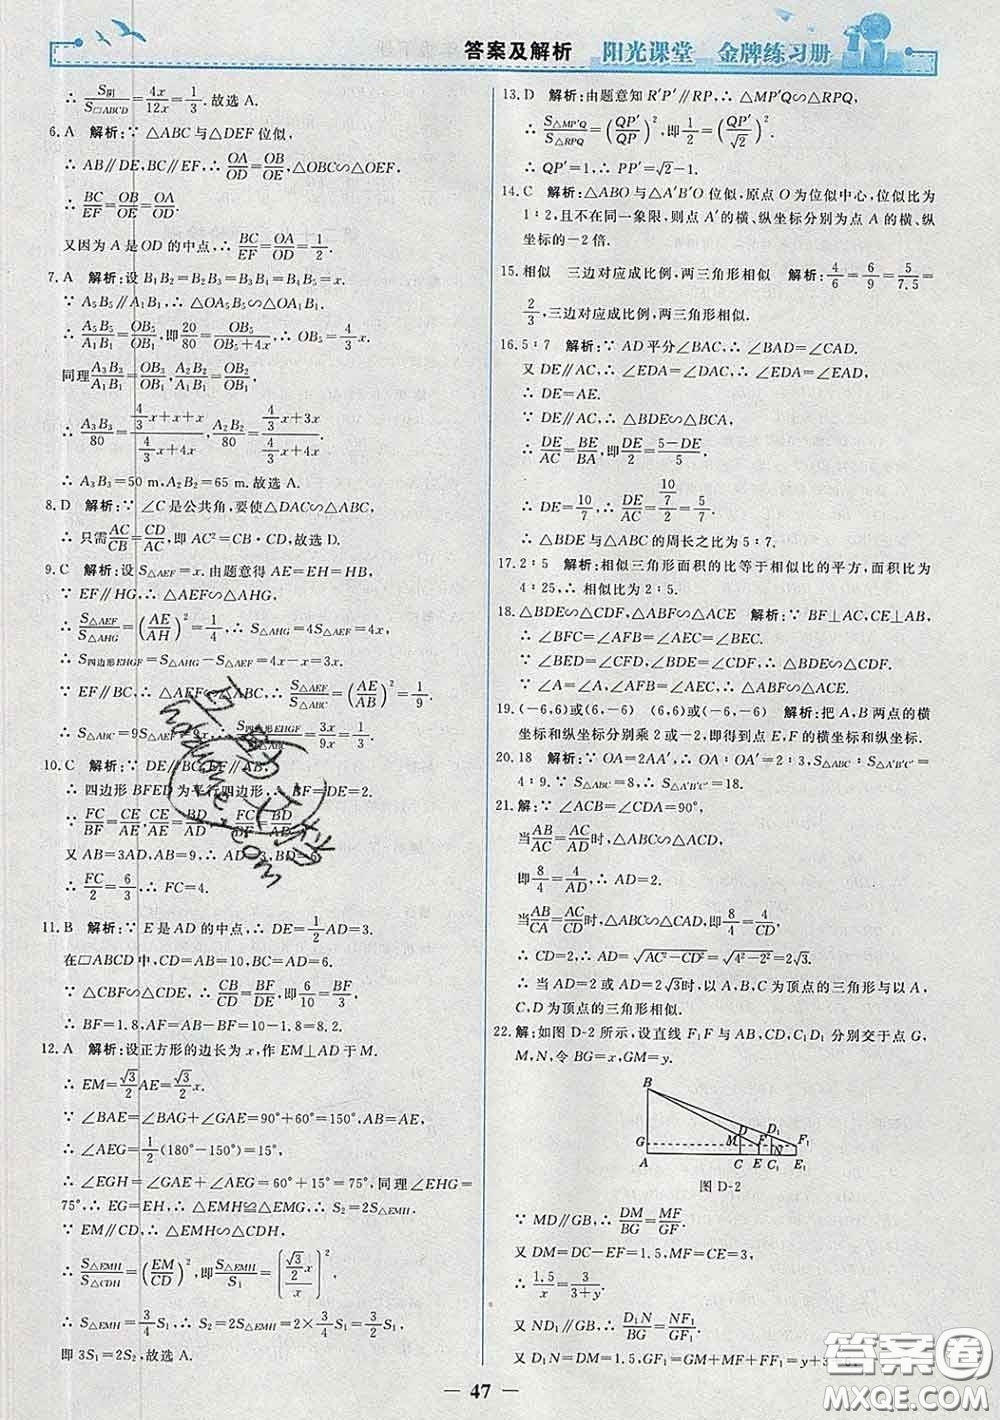 答案及解析 阳光课堂 金牌练习册
∴ S阴/S□ABCD=4x/12x=1/3.故选 A.
6. A 解析:∵ △ABC 与△DEF 位似,
∴ AB∥DE,BC∥EF,∴ OA/OD=OB/OE,△OBC∽△OEF.
∴ BC/EF=OB/OE=OA/OD.
又因为 A 是 OD 的中点,∴ BC/EF=OA/OD=1/2.
7. A 解析:设 B₁B₂=B₂B₃=B₃B₄=B₄B₅=x.
∵ A₅B₅∥A₁B₁,∴ △OA₅B₅∽△OA₁B₁.
∴ A₅B₅/A₁B₁=OB₅/OB₁,即20/80=OB₅/(OB₅+4x),∴ OB₅=4/3x.
同理A₃B₃/A₁B₁=OB₃/OB₁,A₂B₂/A₁B₁=OB₂/OB₁,
∴ A₃B₃/80=(4/3x+x+x)/(4/3x+4x),A₂B₂/80=(4/3x+3x)/(4/3x+4x).
∴ A₃B₃=50 m,A₂B₂=65 m.故选 A.
8. D 解析:∵ ∠C 是公共角,要使△DAC∽△ABC,
∴ 只需AC/CB=CD/AC,即 AC²=CB·CD,故选 D.
9. C 解析:设 S△AEF=x.由题意得 AE=EH=HB,
∵ EF∥HG,∴ △AEF∽△AHG.
∴ S△AEF/S△AHG=(AE/AH)²=1/4,∴ S△AHG=4S△AEF=4x,
∴ S四边形EHGF=S△AHG−S△AEF=4x−x=3x.
∵ EF∥BC,∴ △AEF∽△ABC,∴ S△AEF/S△ABC=(AE/AB)²=1/9.
∴ S△ABC=9S△AEF=9x,∴ S四边形EHGF/S△ABC=3x/9x=1/3.
10. C 解析:∵ DE∥BC,EF∥AB,
∴ 四边形 BFED 为平行四边形,∴ BF=DE=2.
∴ FC/BF=CE/AE,CE/AE=BD/AD,∴ FC/BF=BD/AD.
又 AB=3AD,AB=9,∴ AD=3,BD=6.
∴ FC/2=6/3,∴ FC=4.
11. B 解析:∵ E 是 AD 的中点,∴ DE=1/2AD=3.
在□ABCD 中,CD=AB=10,BC=AD=6.
∵ △CBF∽△CDE,∴ CB/CD=BF/DE,即6/10=BF/3.
∴ BF=1.8,AF=AB−BF=10−1.8=8.2.
12. A 解析:设正方形的边长为 x,作 EM⊥AD 于 M.
∴ EM=√3/2AE=√3/2x.
∵ ∠BAE=∠BAG+∠GAE=90°+60°=150°,AB=AE,
∴ ∠AEG=1/2(180°−150°)=15°.
∴ ∠EGH=∠GAE+∠AEG=60°+15°=75°,同理∠EHG=
75°,∴ EG=EH,∴ △EMH≌△EMG,∴ S₂=2S△EMH.
∵ EM∥CD,∴ △EMH∽△CDH,
∴ S△EMH/S△CDH=(EM/CD)²,即S△EMH/S₁=(√3/2x/x)².
∴ S△EMH=3/4S₁,∴ S₂=2S△EMH=2×3/4S₁=3/2S₁,
即 3S₁=2S₂,故选 A.
13. D 解析:由题意知 R′P′∥RP,∴ △MP′Q∽△RPQ,
∴ S△MP′Q/S△RPQ=(QP′/QP)²,即1/2=(QP′/√2)².
∴ QP′=1.∴ PP′=√2−1.
14. C 解析:△ABO 与△A′B′O 位似,原点 O 为位似中心,位似比为
1∶2,且不在同一象限,则点 A′的横、纵坐标分别为点 A 的横、纵
坐标的−2 倍.
15. 相似 三边对应成比例,两三角形相似 解析:4/6=6/9=5/7.5=
2/3,三边对应成比例,两三角形相似.
16. 5∶7 解析:∵ AD 平分∠BAC,∴ ∠BAD=∠CAD.
又 DE∥AC,∴ ∠EDA=∠CAD,∴ ∠EDA=∠EAD,
∴ DE=AE.
∵ DE∥AC,∴ △BDE∽△BCA,
∴ DE/AC=BE/BA,即DE/2=(5−DE)/5,
∴ DE=10/7,∴ DE/AC=(10/7)/2=5/7.
∴ △BDE 与△ABC 的周长之比为 5∶7.
17. 2∶5 解析:相似三角形面积的比等于相似比的平方,面积比为
4∶25,∴ 相似比为 2∶5.
18. △BDE∽△CDF,△ABF∽△ACE 解析:∵ BF⊥AC,CE⊥AB,
∴ ∠BFC=∠AFB=∠AEC=∠BEC.
∵ ∠BED=∠CFD,∠BDE=∠CDF,∴ △BDE∽△CDF.
∵ ∠A=∠A,∠AFB=∠AEC,∴ △ABF∽△ACE.
19. (−6,6)或(6,−6) (6,6)或(−6,−6) 解析:把 A,B 两点的横
坐标和纵坐标分别乘 2 或−2,即得到点 E,F 的横坐标和纵坐标.
20. 18 解析:∵ OA=2AA′,∴ OA∶OA′=2∶3,∴ S△ABC∶S△A′B′C′=
4∶9,∵ S△ABC=8,∴ S△A′B′C′=18.
21. 解:∵ ∠ACB=∠CDA=90°,
当AB/AC=AC/AD时,△ABC∽△ACD,
即8/4=4/AD,∴ AD=2.
当AB/CA=AC/CD时,△ABC∽△CAD,即8/4=4/CD,
∴ CD=2,∴ AD=√(AC²−CD²)=√(4²−2²)=2√3.
∴ 当 AD=2 或 AD=2√3时,以 A,B,C 为顶点的三角形与以 A,
C,D 为顶点的三角形相似.
22. 解:如图 D-2 所示,设直线 F₁F 与 AB,CD,C₁D₁ 分别交于点 G,
M,N,令 BG=x,GM=y.
B
D D₁
G M F N F₁
A C E C₁ E₁
图 D-2
∵ MD∥GB,∴ DM/BG=MF/GF.
又 DM=DC−EF=1.5,MF=CE=3,
∴ 1.5/x=3/(3+y).
又 ND₁∥GB,∴ D₁N/BG=NF₁/GF₁.
又 D₁N=DM=1.5,GF₁=GM+MF₁=y+3
47
答案圈
MXQE.COM